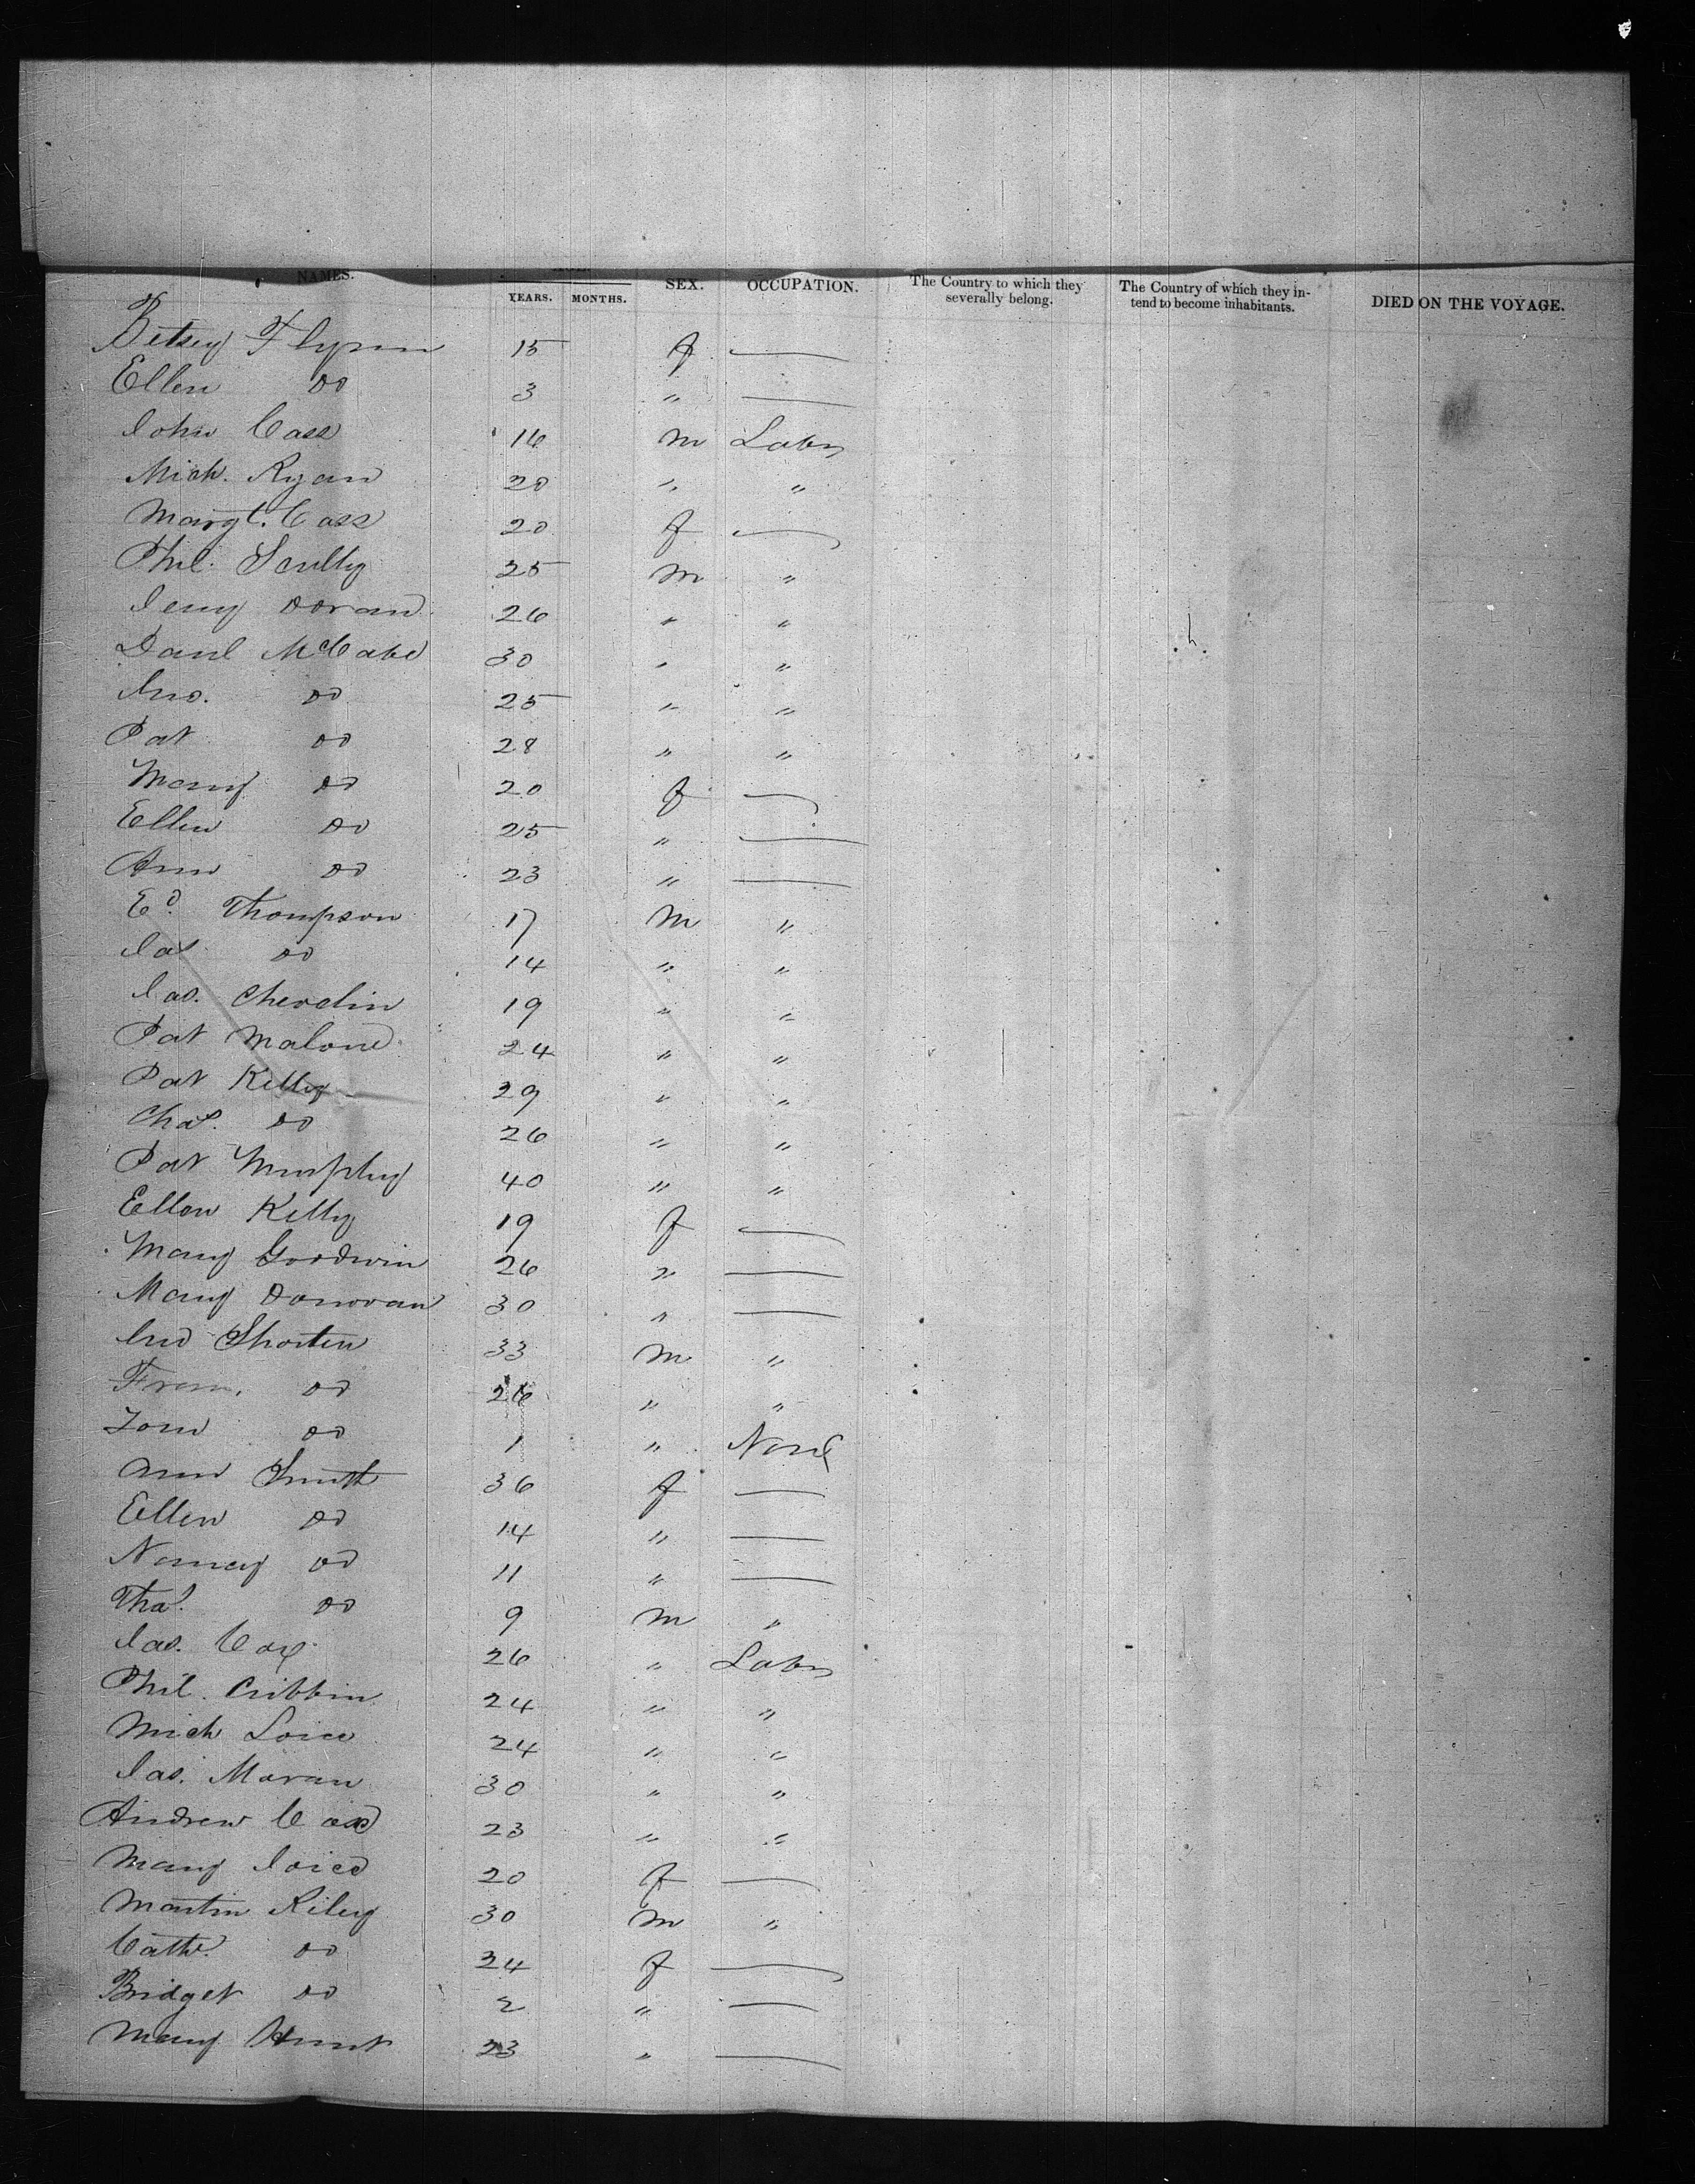 NAMES. YEARS. MONTHS. SEX. OCCUPATION. The Country to which they severally belong. The Country of which they intend to become inhabitants. DIED ON THE VOYAGE.
Betsey Flynn 15 f —
Ellen Do 3 " —
John Cass 16 m Labr
Mich. Ryan 20 " "
Margt. Cass 20 f —
Phil. Scully 25 m "
Jerry Doran 26 " "
Danl McCabe 30 " "
Jno. Do 25 " "
Pat Do 28 " "
Mary Do 20 f —
Ellen Do 25 " —
Ann Do 23 " —
Ed. Thompson 17 m "
Jas Do 14 " "
Jas. 19 " "
Pat Malone 24 " "
Pat Kelly 29 " "
Chas. Do 26 " "
Pat Murphy 40 " "
Ellen Kelly 19 f —
Mary Goodwin 26 " —
Mary Donovan 30 " —
Jno Shorten 33 m "
Do 26 " "
Tom Do 1 " None
Ann Smith 36 f —
Ellen Do 14 " —
Nancy Do 11 " —
Do 9 m "
Jas. Cox 26 " Labr
Phil. Cribbin 24 " "
Mich 24 " "
Jas. Moran 30 " "
Andrew 23 " "
Mary Joice 20 f —
Martin Riley 30 m "
Cathe. Do 24 f —
Bridget Do 2 " —
Mary Hunt 23 " —